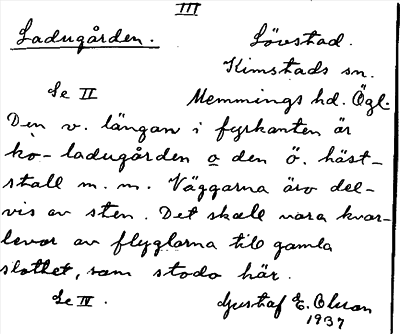 III
Ladugården. Lövstad.
Kimstads sn.
Se II Memmings hd. Ögl.
Den v. längan i fyrkanten är
ko- ladugården o den ö. häst-
stall m. m. Väggarna äro del-
vis av sten. Det skall vara kvar-
levor av flyglarna till gamla
slottet, som stodo här.
Se IV. Gustaf E. Olsson
1937